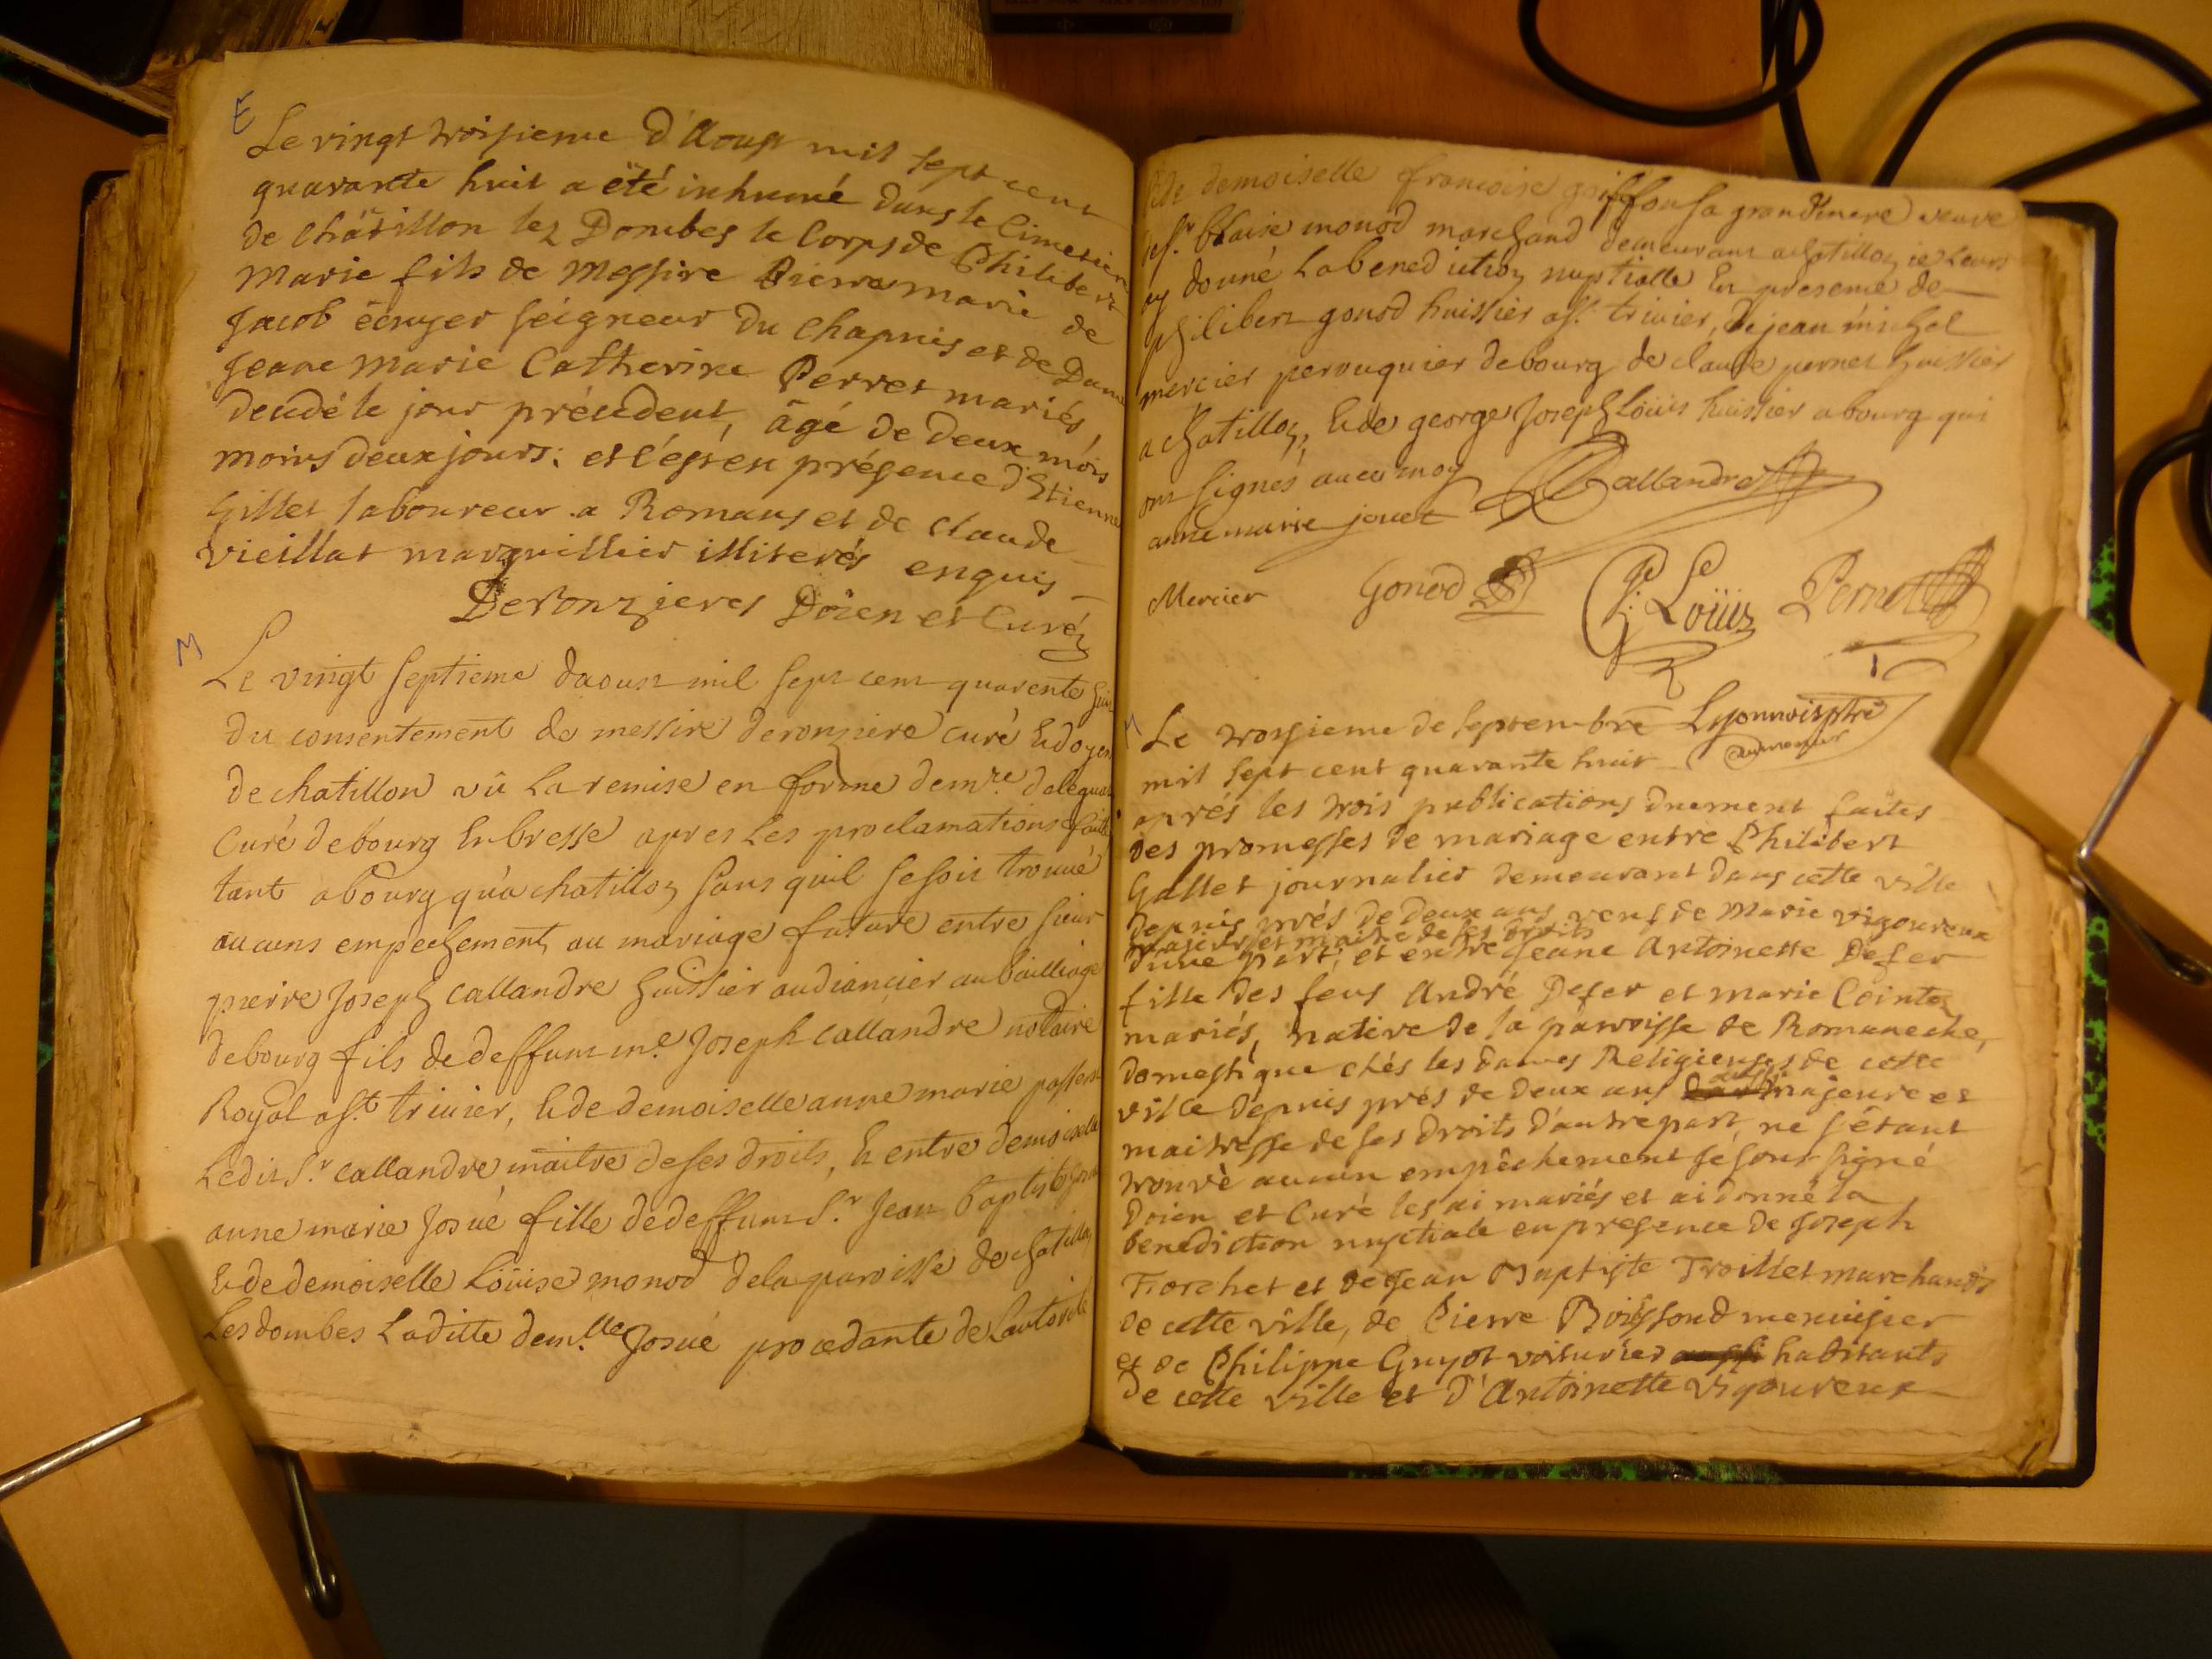 E
Le vingt troisieme d'Aoust mil sept cent
quarante huit a été inhumé dans le Cimetiere
de Châtillon lez Dombes le Corps de Philibert
Marie fils de Messire Pierre marie de
Jacob ecuyer seigneur du Chapuis et de Dame
Jeane Marie Catherine Perret mariés,
decédé le jour précédent, âgé de deux mois
moins deux jours; et c'ést en présence d'Etienne
Gillet laboureur a Romans et de Claude
vieillat marguillier illiterés enquis
Deronzieres Doien et Curé
M
Le vingt septieme daoust mil sept cent quarente huit
du consentement de messire deronziere curé & doyen
de chatillon vû La remise en forme de mre.
Curé debourg En bresse apres Les proclamations faites
tant abourg qu'a chatillon sans quil se soit trouvé
aucuns empechement au mariage future entre sieur
pierre Joseph callandre huissier audiancier au bailliage
debourg fils de deffunt me. Joseph callandre notaire
Royal a st. trivier, & de demoiselle anne marie
Ledit Sr. callandre maitre de ses droits, & entre demoiselle
anne marie Josué fille de deffunt Sr. Jean baptiste
& de demoiselle Löuise monod dela paroisse de chatillon
Les dombes Laditte demlle. Josué procedante de Lautorité
de demoiselle francoise goiffon sa grandmere veuve
de Sr. blaise monod marchand demeurant a chatillon je Leurs
ay donné La benediction nuptialle En presence de
philibert gonod huissier a St. trivier, de jean michel
mercier perouquier debourg de claude pernet huissier
a chatillon, & de george Joseph Löuis huissier a bourg qui
ont signés avec moy Callandre
anne marie jouet
Mercier Gonod Gge Je Loüis Pernet
M
Le troisieme de septembre Lyonnois ptre
mil sept cent quarante huit aumonier
aprés les trois publications duement faites
des promesses de mariage entre Philibert
Gallet journalier demeurant dans cette ville
depuis prés de deux ans veuf de Marie vigoureux
majeur et maitre de ses droits
d'une part; et entre Jeane Antoinette Defer
fille des feus André Defer et marie Cointet
mariés, native de la paroisse de Romaneche,
domestique chés les Dames Religieuses de cette
ville depuis prés de deux ans aussi majeure et
maitresse de ses droits d'autre part, ne s'étant
trouvé aucun empêchement je soussigné
Doien et Curé les ai mariés et ai donné la
benediction nuptiale en presence de Joseph
Forchet et de Jean Baptiste Troillet marchands
de cette ville, de Pierre Boissond menuisier
et de Philippe Guyot voiturier aussi habitants
de cette ville et d'Antoinette vigoureux